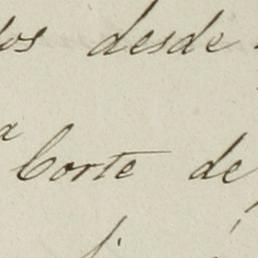 los desde
Corte de